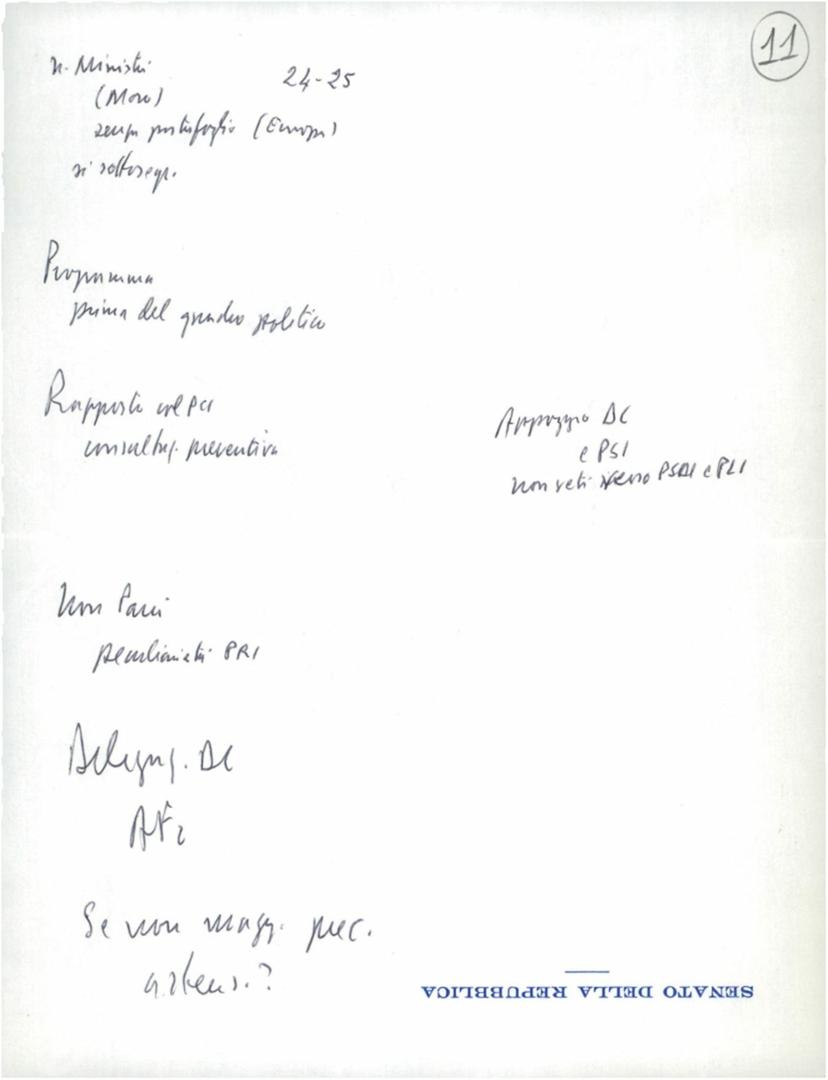 11
n. Ministri 24-25
(Moro)
senza portafoglio (Europa)
n. sottosegr.
Programma
prima del quadro politico
Rapporto col PCI
consultaz. preventiva
Appoggio DC
e PSI
non veti verso PSDI e PLI
Non Pari
peculiarietà PRI
Delegaz. DC
Se non magg. prec.
astens.?
SENATO DELLA REPUBBLICA